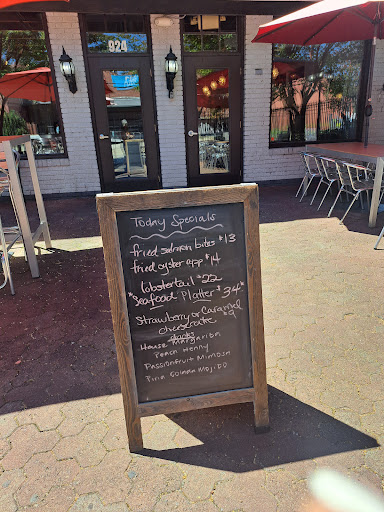 924
Today Specials
fried salmon bites $13
fried oyster app $14
lobstertail $22
*Seafood Platter $34*
Strawberry or Caramel
cheesecake $9
House Margarita
Peach Henny
Passionfruit Mimosa
Pina Colada Mojito